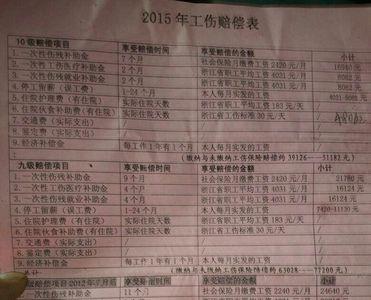 2015年工伤赔偿表
10级赔偿项目 享受赔偿时间 享受赔偿的金额 小计
1. 一次性伤残补助金 7个月 社会保险月缴费工资 2420 元/月
2. 一次性工伤医疗补助金 2个月 浙江省职工平均工资 4031 元/月 8062
3. 一次性伤残就业补助金 2个月 浙江省职工平均工资 4031 元/月 8062
4. 停工留薪（误工费） 1-24个月 本人每月实发的工资
5. 住院护理费（有住院） 实际住院天数 浙江省职平均工资 183 元/天 /
6. 住院伙食补助费（有住院） 实际住院天数 浙江省工伤标准 30 元/天 /
7. 交通费（实际支出） / / /
8. 鉴定费（实际支出） / / /
9. 经济补偿金 每工作1年有1个月 本人每月实发的工资 /
（缴纳与未缴纳工伤保险赔偿约 39126---51182 元）
九级赔偿项目 享受赔偿时间 享受赔偿的金额 小计
1. 一次性伤残补助金 9个月 社会保险月缴费工资 2420 元/月 21780
2. 一次性工伤医疗补助金 4个月 浙江省职工平均工资 4031 元/月 16124
3. 一次性伤残就业补助金 4个月 浙江省职工平均工资 4031 元/月 16124
4. 停工留薪（误工费） 1-24个月 本人每月实发的工资
5. 住院护理费（有住院） 实际住院天数 浙江省职工平均工资 183 元/天 /
6. 住院伙食补助费（有住院） 实际住院天数 浙江省工伤标准 30 元/天 /
7. 交通费（实际支出） / / /
8. 鉴定费（实际支出） / / /
9. 经济补偿金 每工作1年有1个月 本人每月实发的工资 /
总计 （缴纳与未缴纳工伤保险赔偿约 63028---77200 元）
赔偿项目 享受赔偿时间 享受赔偿的金额 小计
一次性伤残补助金 11个月 社会保险月缴费工资 2240 元/月 24640